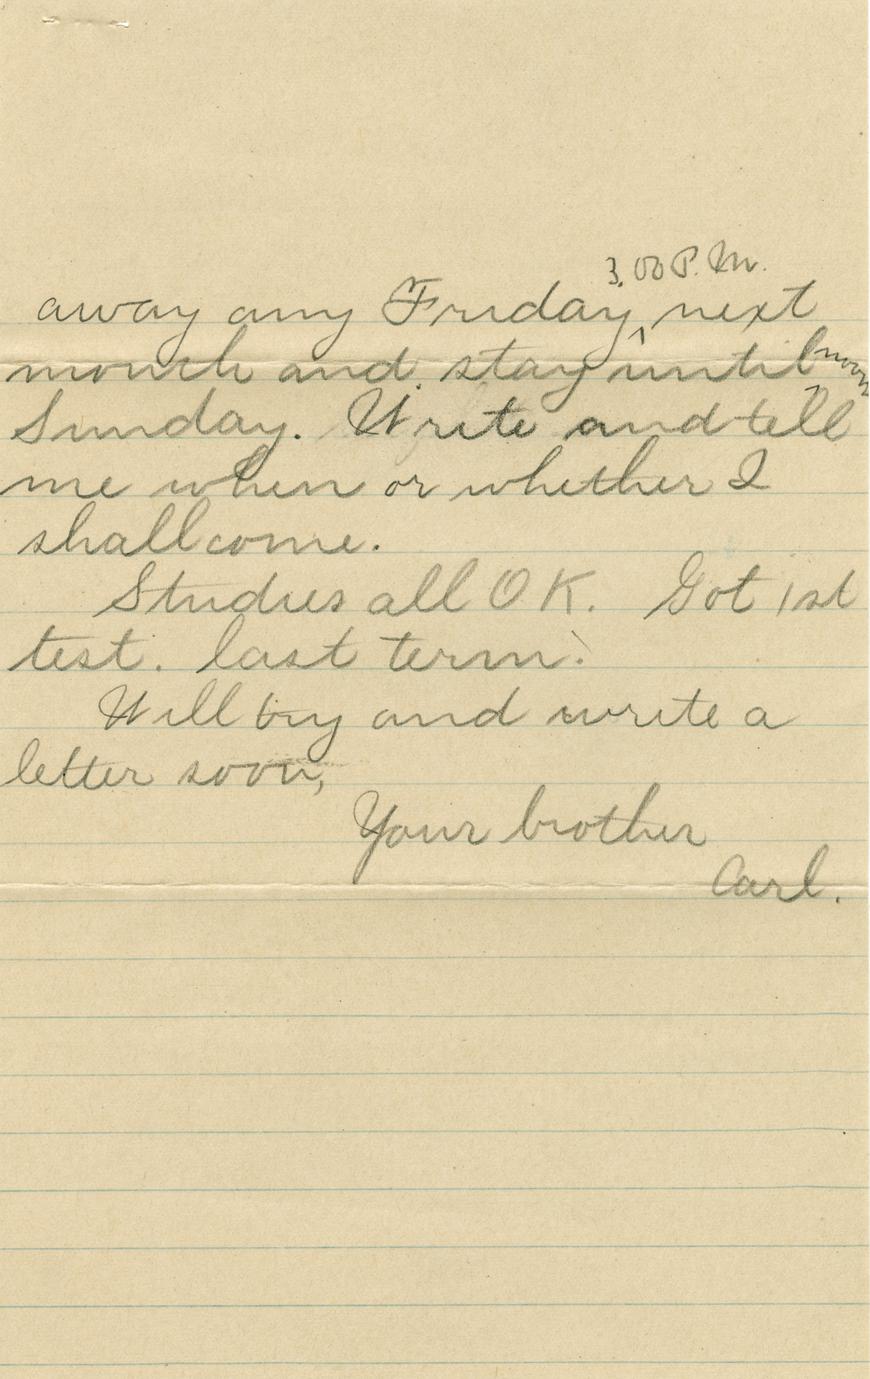 3.00 P.M.
away any Friday, next
month and stay until noon
Sunday. Write and tell
me when or whether I
shall come.
Studies all O K. Got 1st
test. last term.
Will try and write a
letter soon,
Your brother
Carl.